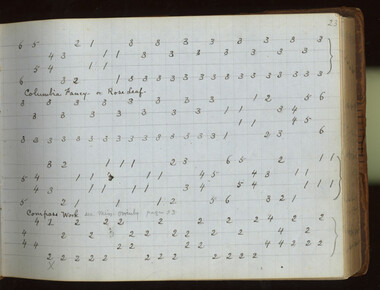 23
6 5 2 1 3 3 3 3 3 3 3 3 3
4 3 1 1 3 3 3 3 3 3
5 4 1 1
6 3 2 1 3 3 3 3 3 3 3 3 3 3 3 3 3 3
Columbia Fancy. or Rose leaf.
3 3 3 3 3 3 3 3 3 1 2 5 6
3 3 3 3 3 3 3 3 1 1 3 4
1 1 4 5
3 3 3 3 3 3 3 3 3 3 3 3 3 3 3 1 2 3 6
3 2 1 1 1 2 3 6 5 2 1 1
5 4 1 1 1 1 4 5 4 3 1 1
4 3 1 1 1 1 3 4 5 4 1 1 1
5 2 1 1 1 2 5 6 3 2 1
Compass Work page 53
4 2 2 2 2 2 2 2 2 4 2 2
4 4 2 2 2 2 2 2 2 2 2 4 2
4 2 2 2 2 2 4 4 3 2 2
2 2 2 2 2 2 2 2 2 2 2 2